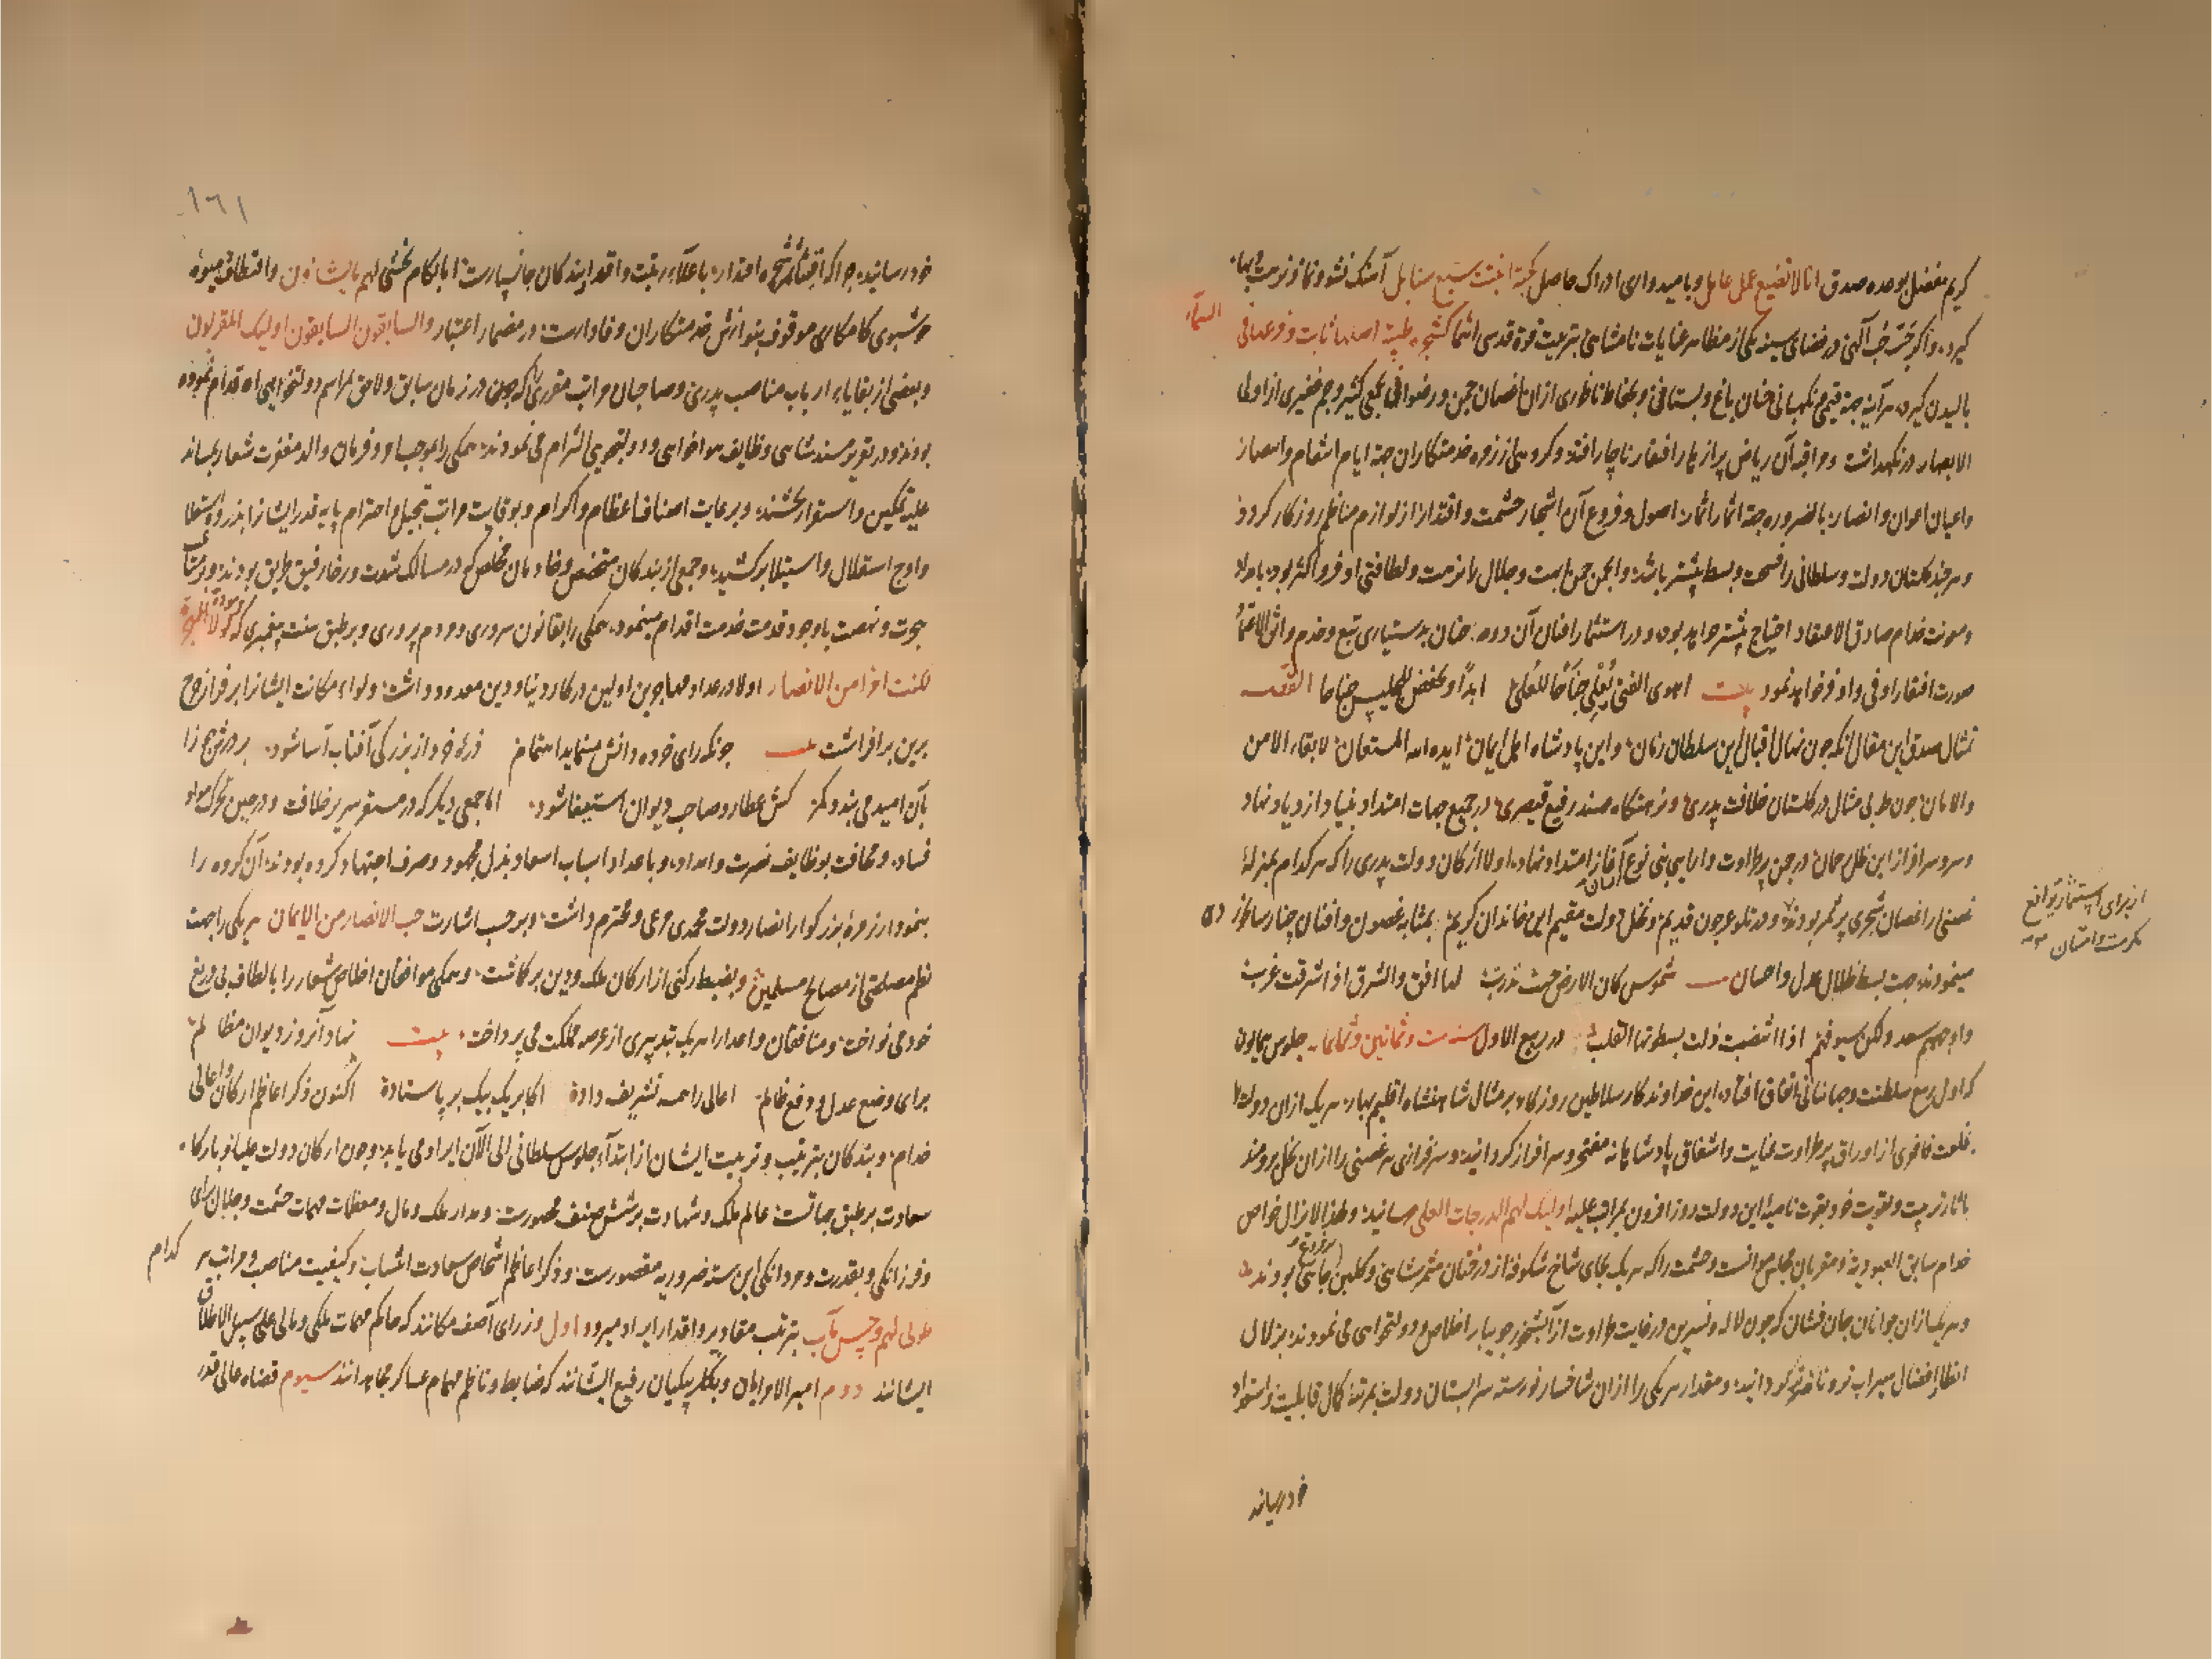 کریم مفضل بوعده صدق انا لا نضیع عمل عامل و بامیدواری ادراک حاصل کحبة انبتت سبع سنابل آهنک نشو و نما و نزهت و بهاء
کیرد و اگر حب آلهی در فضای سینه یکی از مظاهر عنایات نامتناهی بتربیت قوة قدسی انتما کشجرة طیبة اصلها ثابت و فرعها فی السمآء
بالیدن کیرد هر آینه جهة نکهبانی چنان باغ و بستانی و بلحاظ ناظری ازان اغصان چمن و رضوانی بجمعی کثیر و جم غفیری از اولی
الابصار در نکهداشت و مراقبه آن ریاض پر ازهار افتقار ناچار افتد و کروهی از زمره خدمتکاران جهة ایام
و اعیان اعوان و انصار بالضروره جهة اثمار اصول و فروع آن اشجار حشمت و اقتدار از لوازم مناظم روزکار کردد
و هر چند کلستان دولت و سلطانی را فسحت و بسط بیشتر باشد و انجمن چمن ابهت و جلال را نزهت و لطافتی اوفر و اکثر بود بامداد
و معونت خدام صادق الاعتقاد احتیاج بیشتر خواهد بود و در استثمار افنان آن دوحه چنان بدستیاری تبع و خدم واثق الاعتماد
صورت افتقار اوفی و اوفر خواهد نمود بیت اهوی الفتی یعلی جناحا للعلی ابدا و یخفض للجلیس جناحا القصه
تمثال صدق این مقال آنکه چون نهال اقبال این سلطان زمان و این پادشاه اهل ایمان ایده الله المستعان لابقاء الامن
و الامان چون طوبی مثال در کلستان خلافت پدری و نزهتکاه مسند رفیع قیصری در جمیع جهات امتداد بنیاد ازدیاد نهاد
و سرو سرافراز این ظل رحمان در چمن پر طراوت بنی نوع انسان آغاز امتداد نهاد اولا ارکان دولت پدری را که هر کدام بمنزله
غصنی از اغصان شجری پر ثمر بودند و عرجون قدیم و نخل دولت مقیم این خاندان کریم بمثابه غصون و افنان چنار
از برای استثمار توابع مکرمت و امتنان
مینمودند جهت بسط ظلال عدل و احسان شموس کان الارض حیث غربت لها افق و الشرق اذا اشرقت غرب
در ربیع الاول سنه ست و ثمانین و ثمانمایه جلوس همایون
که اول ربیع سلطنت و جهانبانی اتفاق افتاد این خداوندکار سلاطین روزکار بر مثال شاهنشاه اقلیم بهار هر یک ازان دولت
بخلعت فاخری از اوراق پر طراوت عنایت و اشفاق پادشاهانه مفتخر و سرافراز کردانید و سرفرازی هر غصنی را ازان نخل برومند
بآثار تربیت و تقویت خود بقوت نامیه این دولت روزافزون بمراقب علیه اولیک لهم الدرجات العلی رسانید و لهذا لا یزال خواص
خدام سابق العبودیة و مقربان مجلس موانست و حشمت را که هر یک بجای شاخ شکوفه از درختان مثمر شاهی و کلبن جاهی بودند
و هر یک ازان جوانان جان فشان که چون لاله و نسرین در غایت طراوت از آبشخور جویبار اخلاص و دولتخواهی می نمودند بزلال
افضال سیراب تر و تازه تر کردانید و مقدار هر یکی را ازان شاخسار نورسته سرابستان دولت بمرتبه کمال قابلیت و استعداد
خود رسانید
١٦١
خود رسانید چرا که باعلاء رتبت و اقدار بندکان جان سپار است تا بکام بخشی لهم ما یشاؤن و اقتطاف میوه
خوشبوی کامکاری موقوف بنوازش خدمتکاران وفادار است در مضمار اعتبار والسابقون السابقون اولیک المقربون
و بعضی از بقایاء ارباب مناصب پدری و صاحبان مراتب مقرری که چون در زمان سابق و لاحق بمراسم دولتخواهی اقدام نموده
بودند و در تقویر مسند شاهی وظایف هواخواهی و دولتجویی التزام می نمودند همکی را بموجب امر و فرمان والد مغفرت شعار بمساند
علیه تمکین و استقرار بخشند و برعایت اصناف اعظام و اکرام و بوقایت مراتب تبجیل و احترام پایه قدر ایشانرا بذروه استعلا
و اوج استقلال و استیلا برکشید و جمعی از بندکان متخصص و خادمان مخلص که در مسالک شدت و رخا رفیق طریق بودند
هجرت و نهضت باوجود قدمت خدمت اقدام مینمود همکی را بقانون سروری و مردم پروری و بر طبق سنت پیغمبری که لولا الهجرة
لکنت امرا من الانصار اولا در عداد مهاجرین اولین در کار دنیا و دین معدود داشت و لواء مکانت ایشانرا بر فراز اوج
برین برافراشت بیت چونکه رای خرده دانش مینماید اهتمام ذره خرد از بزرکی آفتاب آسا شود
بآن امید می بندد کمر کش عطارد صاحب دیوان استیفا شود اما جمعی دیکر که در مستقر سریر خلافت و در حین تحرک مواد
فساد و مخافت بوظایف نصرت و امداد و باعداد اسباب اسعاد بذل مجهود و صرف اجتهاد کرده بودند آن کروه را
بنمود از زمره بزرکوار انصار دولت محمدی مرعی و محترم داشت و بر حسب اشارت حب الانصار من الایمان هر یکی را جهت
نظم مصلحتی از مصالح مسلمین و بضبط رکنی از ارکان ملک و دین برکماشت و همکی مواخات اخلاص شعار را بالطاف بی دریغ
خود می نواخت و منافقان و اعدا را هر یک بتدبیری از عرصه مملکت می پرداخت بیت نهاد آنروز دیوان مظالم
برای وضع عدل و دفع ظالم اعالی را همه تشریف داده اکابر یک بیک بر پا ستاده اکنون ذکر اعاظم ارکان و اعالی
خدام و بندکان بترتیب و تربیت ایشان از ابتدآء جلوس سلطانی الی الآن ایراد می یابد و چون ارکان دولت علیا و بارکاه
سعادت بر طبق جهات ست عالم ملک و شهادت بر شش صنف محصورست و مدار ملک و مال و معظمات مهمات حشمت و جلال
و فرزانکی و بقدرت و مردانکی این سته ضروریه مقصورست و ذکر اعاظم اشخاص سعادت انتساب و کیفیت مناصب و مراتب هر کدام
طوبی لهم و حسن مآب بترتیب مقادیر و اقدار ایراد میرود اول وزرای آصف مکانند که حاکم مهمات ملکی و مالی علی سبیل الاطلاق
ایشانند دوم امیر الامرایان و بکلربکیان رفیع الشانند که ضابط و ناظم مهام عساکر مجاهدانند سیوم قضاة عالی قدر